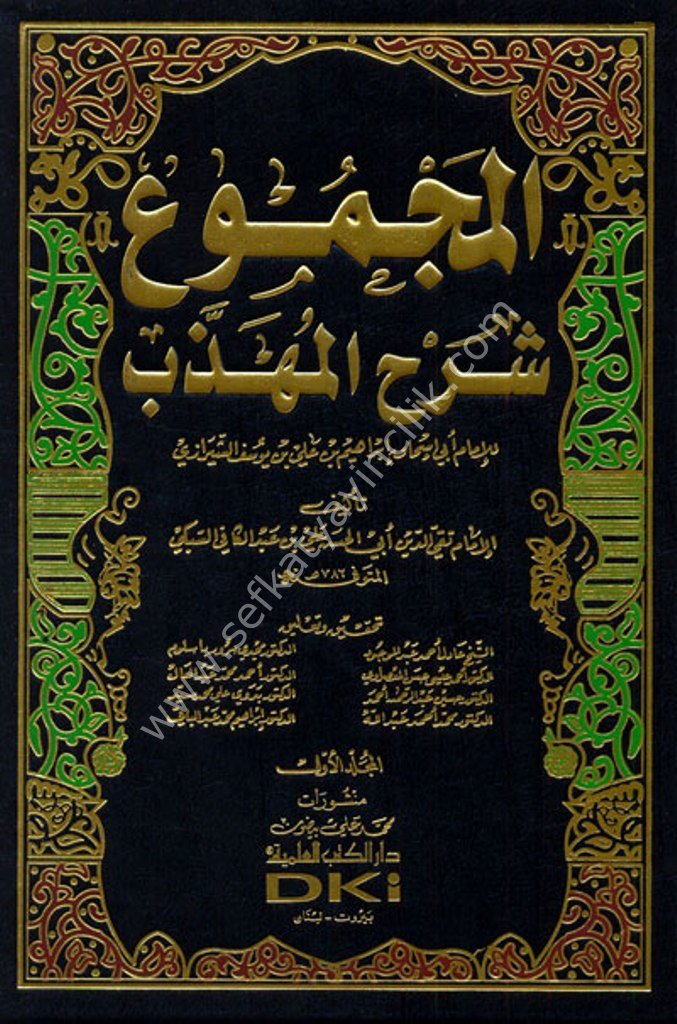 المَجْمُوع
شَرْح المُهَذَّب
للإمام أبي إسحاق إبراهيم بن علي بن يوسف الشيرازي
تأليف
الإمام تقي الدين أبي الحسن علي بن عبد الكافي السبكي
المتوفى ٧٨٦ هـ
تحقيق وتعليق
الشيخ عادل أحمد عبد الموجود الدكتور مجدي سرور باسلوم
الدكتور أحمد عيسى حسن المعصراوي الدكتور أحمد محمد عبد العال
الدكتور حسين عبد الرحمن أحمد الدكتور بدوي علي محمد
الدكتور محمد أحمد عبد الله الدكتور إبراهيم محمد عبد الباقي
المجلد الأول
منشورات
محمد علي بيضون
دار الكتب العلمية
DKi
بيروت - لبنان
www.sefkatyayincilik.com